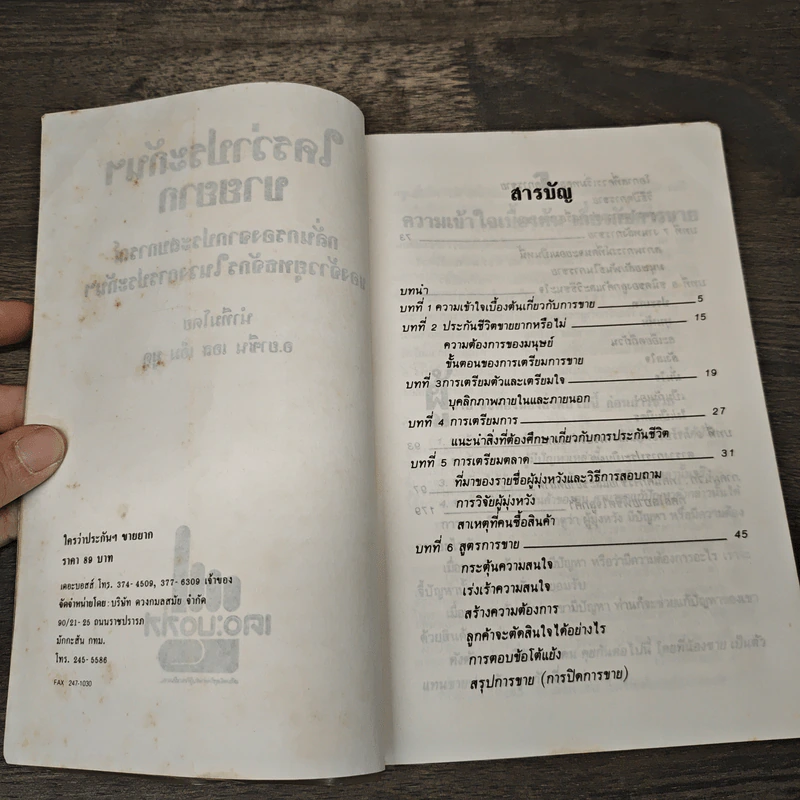 ใครว่าประกันฯ ขายยาก
ราคา 89 บาท
เดอะบอสส์ โทร. 374-4509, 377-6309 เจ้าของ
จัดจำหน่ายโดย: บริษัท ดวงกมลสมัย จำกัด
90/21-25 ถนนราชปรารภ
มักกะสัน กทม.
โทร. 245-5586
FAX 247-1030
สารบัญ
บทนำ
บทที่ 1 ความเข้าใจเบื้องต้นเกี่ยวกับการขาย 5
บทที่ 2 ประกันชีวิตขายยากหรือไม่ 15
ความต้องการของมนุษย์
ขั้นตอนของการเตรียมการขาย
บทที่ 3การเตรียมตัวและเตรียมใจ 19
บุคลิกภาพภายในและภายนอก
บทที่ 4 การเตรียมการ 27
แนะนำสิ่งที่ต้องศึกษาเกี่ยวกับการประกันชีวิต
บทที่ 5 การเตรียมตลาด 31
ที่มาของรายชื่อผู้มุ่งหวังและวิธีการสอบถาม
การวิจัยผู้มุ่งหวัง
สาเหตุที่คนซื้อสินค้า
บทที่ 6 สูตรการขาย 45
กระตุ้นความสนใจ
เร่งเร้าความสนใจ
สร้างความต้องการ
ลูกค้าจะตัดสินใจได้อย่างไร
การตอบข้อโต้แย้ง
สรุปการขาย (การปิดการขาย)